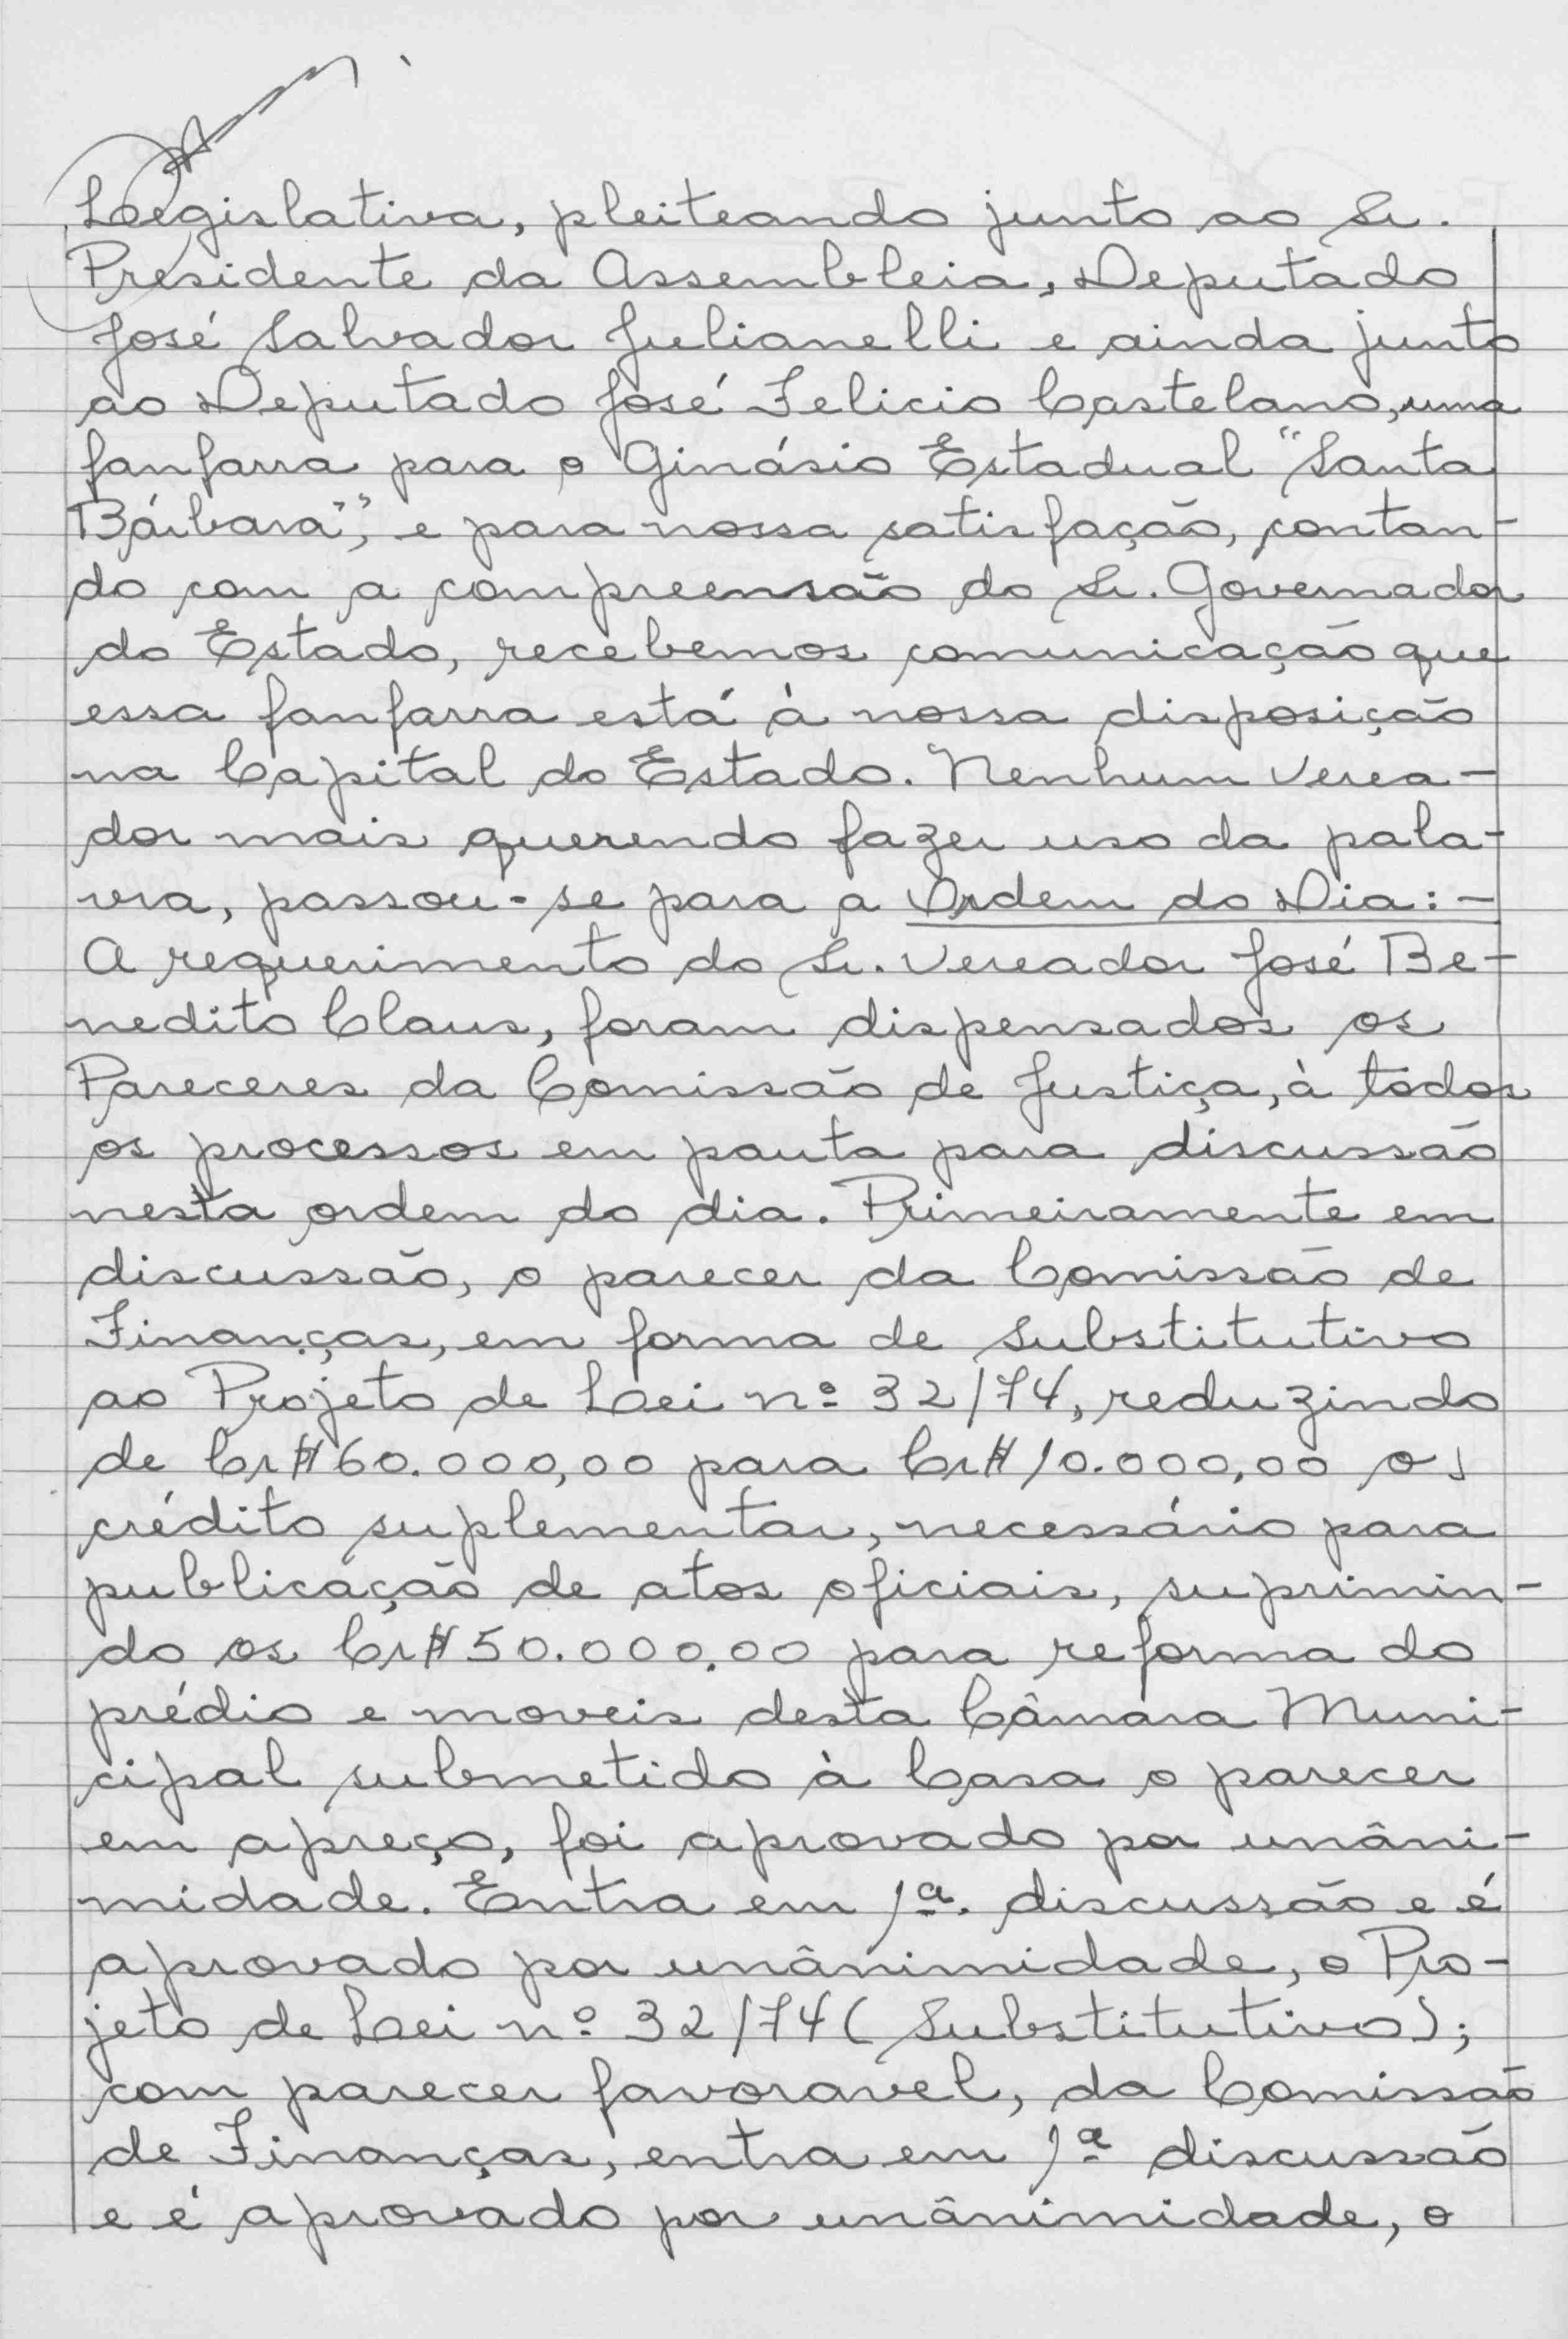 Legislativa, pleiteando junto ao Sr.
Presidente da Assembleia, Deputado
José Salvador Julianelli e ainda junto
ao Deputado José Felicio Castelano, uma
fanfarra para o Ginásio Estadual "Santa
Bárbara", e para nossa satisfação, contan-
do com a compreensão do Sr. Governador
do Estado, recebemos comunicação que
essa fanfarra está à nossa disposição
na Capital do Estado. Nenhum verea-
dor mais querendo fazer uso da pala-
vra, passou-se para a Ordem do Dia:-
A requerimento do Sr. Vereador José Be-
nedito Claus, foram dispensados os
Pareceres da Comissão de Justiça, à todos
os processos em pauta para discussão
nesta ordem do dia. Primeiramente em
discussão, o parecer da Comissão de
Finanças, em forma de Substitutivo
ao Projeto de Lei nº 32/74, reduzindo
de Cr$ 60.000,00 para Cr$ 10.000,00 o
crédito suplementar, necessário para
publicação de atos oficiais, suprimin-
do os Cr$ 50.000,00 para reforma do
prédio e moveis desta Câmara Muni-
cipal submetido à Casa o parecer
em apreço, foi aprovado por unâni-
midade. Entra em 1ª. discussão e é
aprovado por unânimidade, o Pro-
jeto de Lei nº 32/74 (Substitutivo);
com parecer favoravel, da Comissão
de Finanças, entra em 1ª discussão
e é aprovado por unânimidade, o